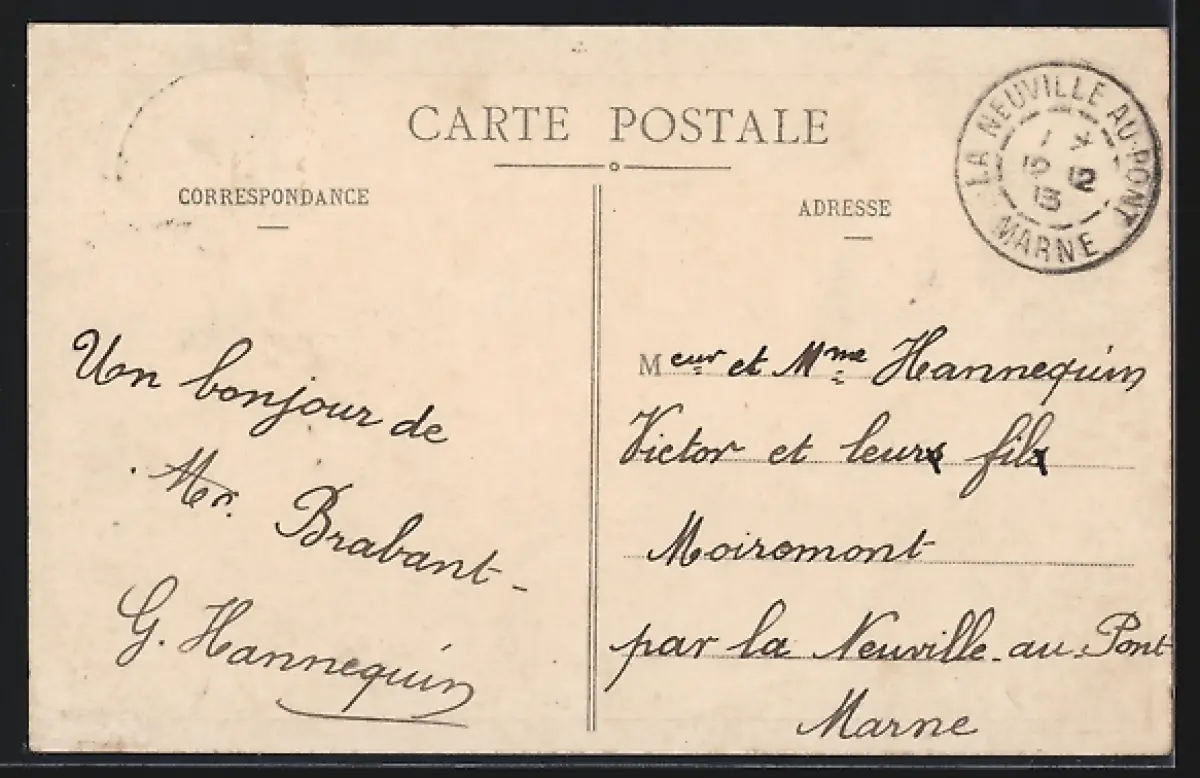 CARTE POSTALE
CORRESPONDANCE
ADRESSE
LA NEUVILLE AU-PONT
12
13
MARNE
Un bonjour de
Mr. Brabant-
G. Hannequin
Meur et Mme Hannequin
Victor et leur fil
Moiremont
par la Neuville-au-Pont
Marne